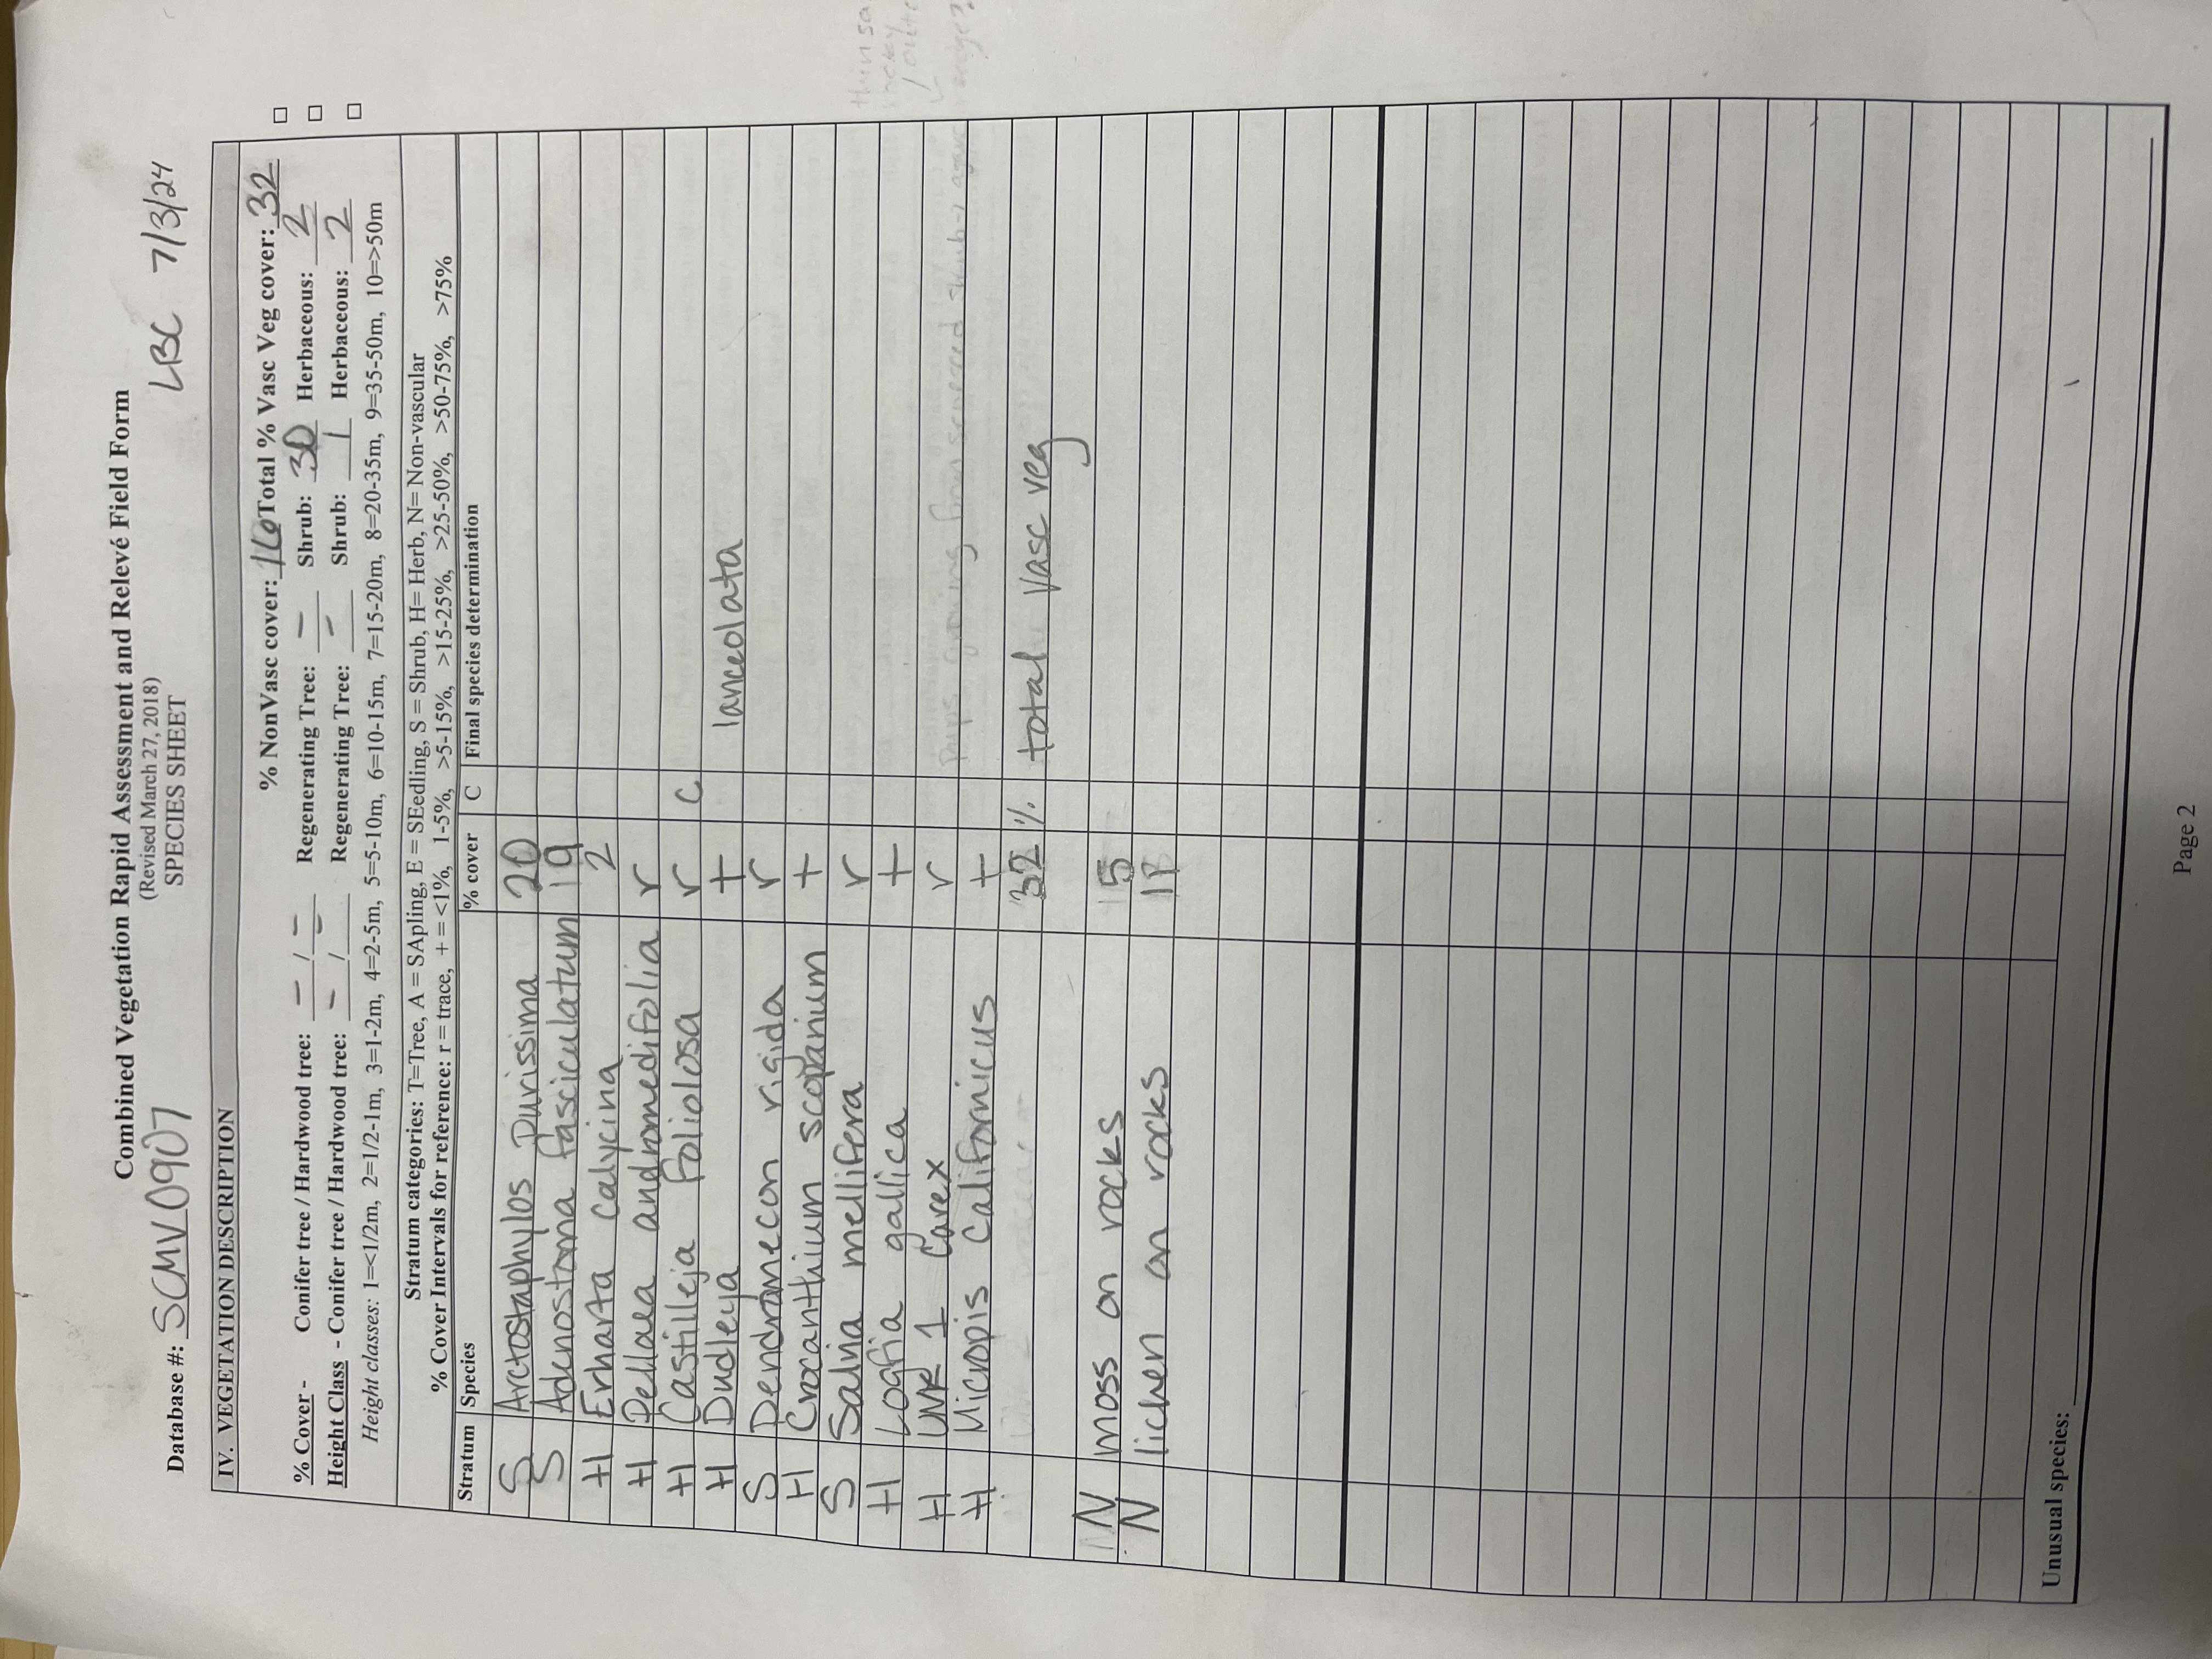 Combined Vegetation Rapid Assessment and Relevé Field Form
(Revised March 27, 2018)
SPECIES SHEET
Database #: SCMV0907 LBC 7/3/24
IV. VEGETATION DESCRIPTION
% NonVasc cover: 16 Total % Vasc Veg cover: 32
% Cover - Conifer tree / Hardwood tree: - / - Regenerating Tree: - Shrub: 30 Herbaceous: 2
Height Class - Conifer tree / Hardwood tree: - / - Regenerating Tree: - Shrub: 1 Herbaceous: 2
Height classes: 1=<1/2m, 2=1/2-1m, 3=1-2m, 4=2-5m, 5=5-10m, 6=10-15m, 7=15-20m, 8=20-35m, 9=35-50m, 10=>50m
Stratum categories: T=Tree, A = SApling, E = SEedling, S = Shrub, H= Herb, N= Non-vascular
% Cover Intervals for reference: r = trace, + = <1%, 1-5%, >5-15%, >15-25%, >25-50%, >50-75%, >75%
Stratum Species % cover C Final species determination
S Arctostaphylos purissima 20
S Adenostoma fasciculatum 19
H Erharta calycina 2
H Pellaea andromedifolia r
H Castilleja foliolosa r C
H Dudleya + lanceolata
S Dendromecon rigida r
H Crocanthium scoparium +
S Salvia mellifera r
H Logfia gallica +
H UNK 1 Carex r
H Micropis californicus +
32 % total vasc veg
N moss on rocks 15
N lichen on rocks
Unusual species:
Page 2